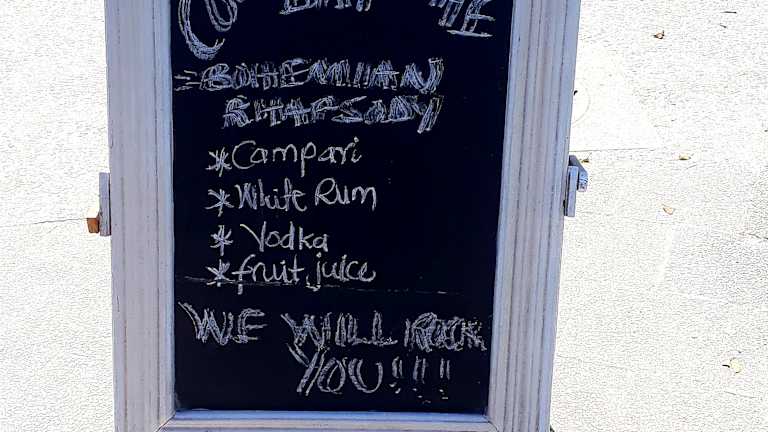 THE
=BOHEMIIAN
RHAPSODY
*Campari
*White Rum
* Vodka
*fruit juice
WE WILL ROCK
YOU!!!!